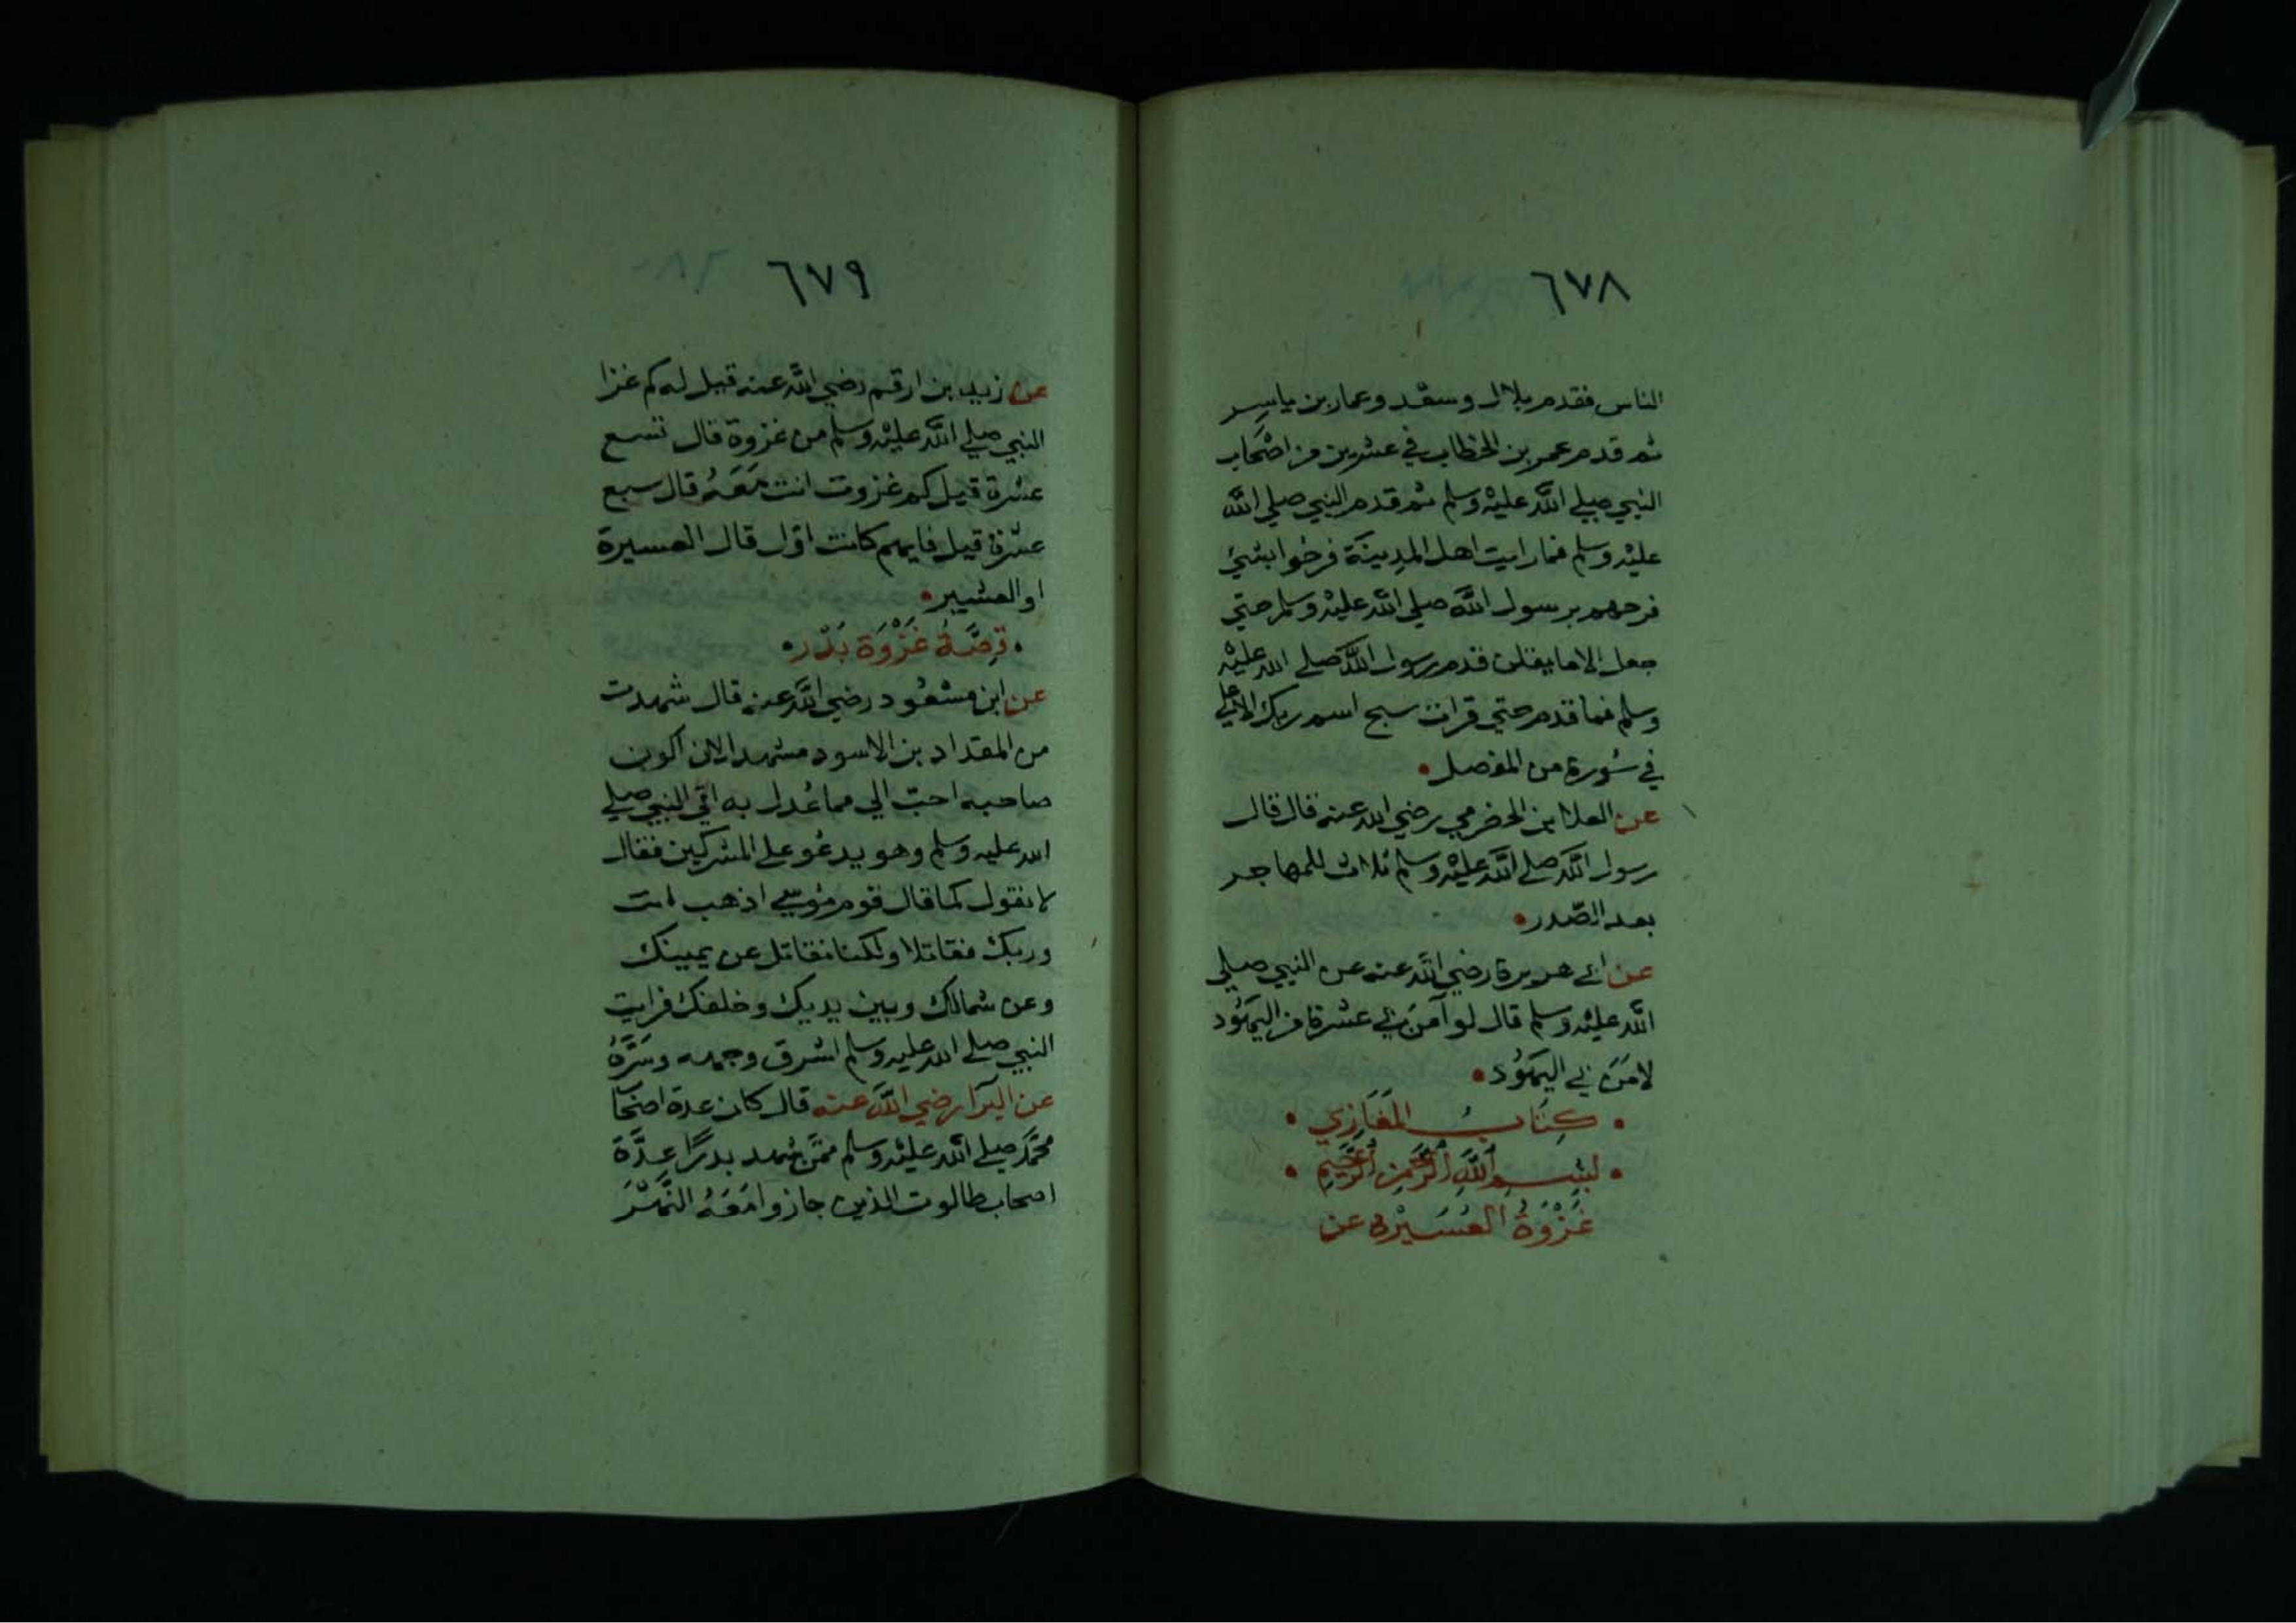 ٦٧٨
الناس فقدم بلال وسعد وعمار بن ياسر
ثم قدم عمر بن الخطاب في عشرين من اصحاب
النبي صلي الله عليه وسلم ثم قدم النبي صلي الله
عليه وسلم فما رايت اهل المدينة فرحوا بشيء
فرحهم برسول الله صلي الله عليه وسلم حتي
جعل الاما يقلن قدم رسول الله صلي الله عليه
وسلم فما قدم حتي قرات سبح اسم ربك الاعلي
في سورة من المفصل
عن العلا بن الحضرمي رضي الله عنه قال قال
رسول الله صلي الله عليه وسلم ثلاث للمهاجر
بعد الصدر
عن ابي هريرة رضي الله عنه عن النبي صلي
الله عليه وسلم قال لو آمن بي عشرة من اليهود
لامن بي اليهود
كتاب المغازي
بسم الله الرحمن الرحيم
غزوة العسيرة عن
٦٧٩
عن زيد بن ارقم رضي الله عنه قيل له كم غزا
النبي صلي الله عليه وسلم من غزوة قال تسع
عشرة قيل كم غزوت انت معه قال سبع
عشرة قيل فايهم كانت اول قال العسيرة
او العشير
قصة غزوة بدر
عن ابن مسعود رضي الله عنه قال شهدت
من المقداد بن الاسود مشهدا لان اكون
صاحبه احب الي مما عدل به اتي النبي صلي
الله عليه وسلم وهو يدعو علي المشركين فقال
لا نقول كما قال قوم موسي اذهب انت
وربك فقاتلا ولكنا نقاتل عن يمينك
وعن شمالك وبين يديك وخلفك فرايت
النبي صلي الله عليه وسلم اشرق وجهه وسره
عن البرآ رضي الله عنه قال كان عدة اصحا
محمد صلي الله عليه وسلم ممن شهد بدرًا عدة
اصحاب طالوت الذين جازوا معه النهر